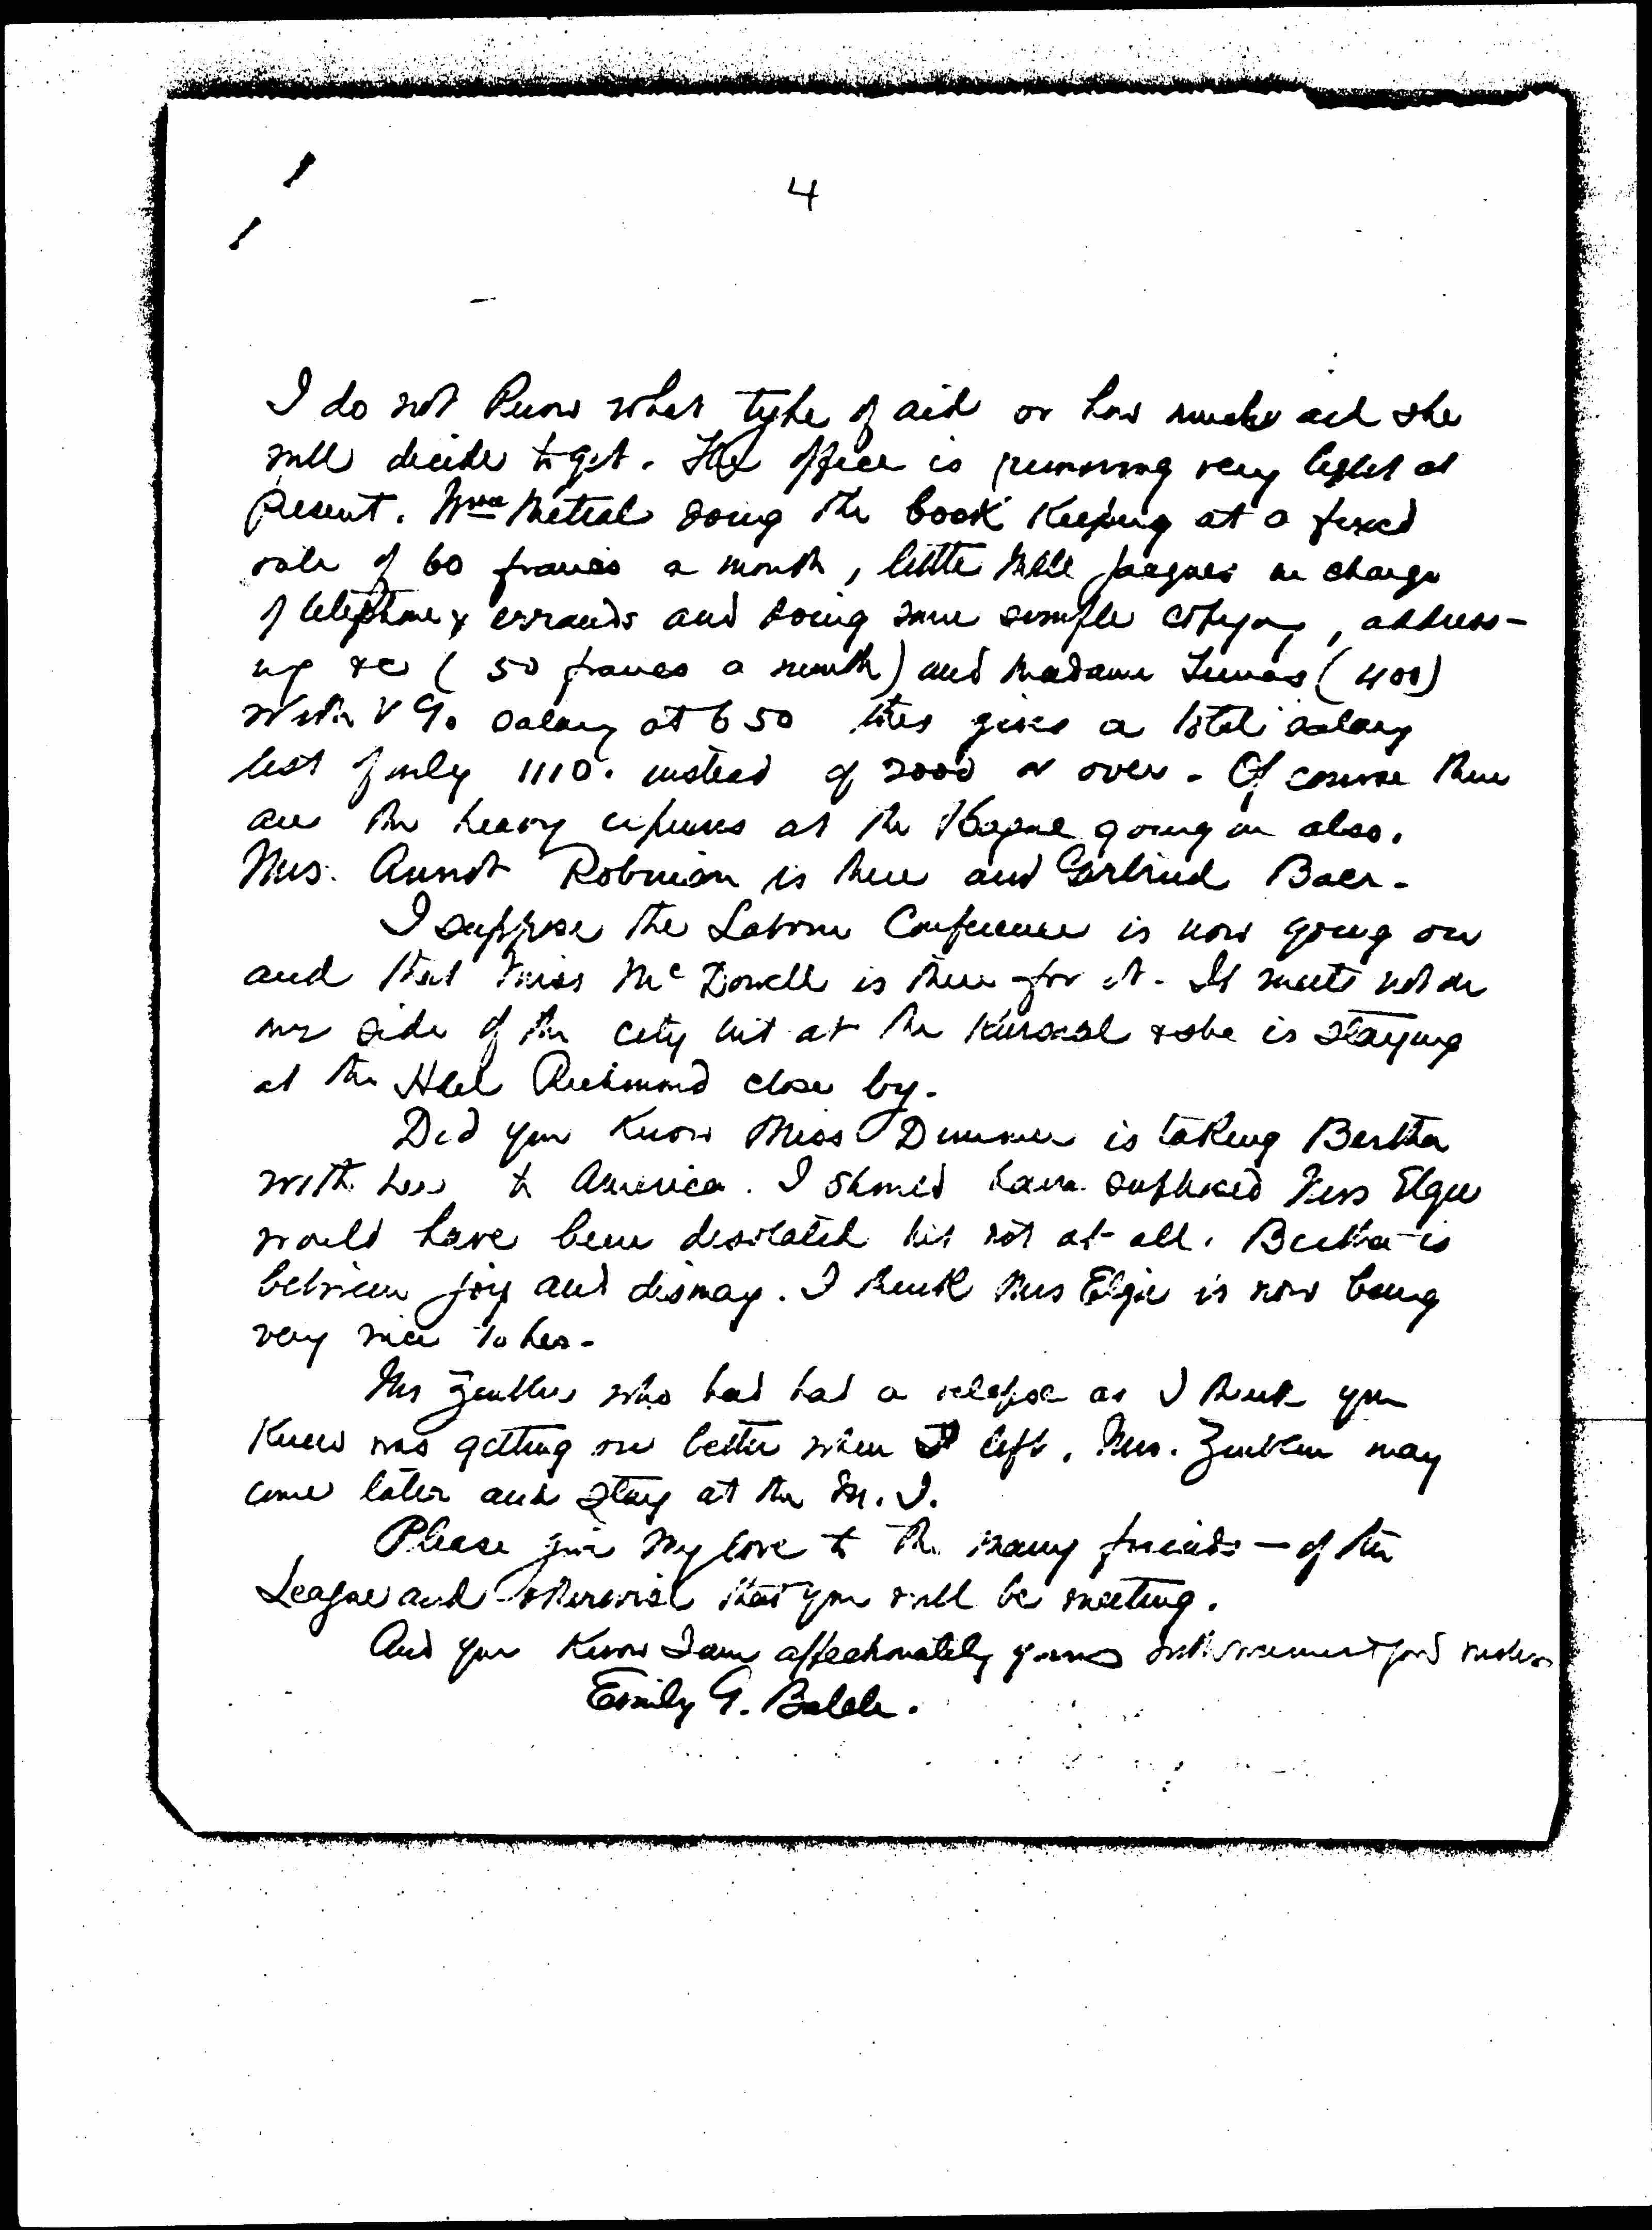 4
I do not know what type of aid or how much aid she
will decide to get. The office is running very light at
present. Mme Metral doing the book keeping at a fixed
rate of 60 francs a month, little Mlle Jaques in charge
of telephone & errands and doing some simple copying, address-
ing &c (50 francs a month) and Madame Lumas (400)
With V G's salary at 650 this gives a total salary
list of only 1110. instead of 2000 or over. Of course there
are the heavy expenses at the Hague going on also.
Mrs. Annot Robinson is there and Gertrud Baer.
I suppose the Labour Conference is now going on
and that Miss McDowell is there for it. It meets not on
our side of the city but at the Kursaal & she is staying
at the Hotel Richmond close by.
Did you know Miss Dummer is taking Bertha
with her to America. I should have supposed Miss Elgie
would have been desolated but not at all. Bertha is
between joy and dismay. I think Miss Elgie is now being
very nice to her.
Mr who had had a relapse as I think you
knew was getting on better when I left. Mrs. may
come later and stay at the M. I.
Please give my love to the many friends – of the
League and otherwise that you will be meeting.
And you know I am affectionately yours with warmest good wishes
Emily G. Balch.